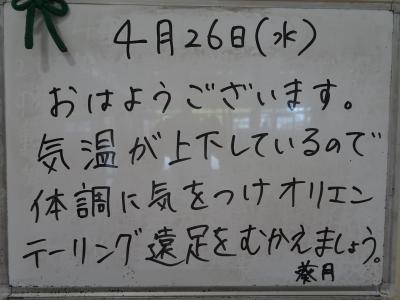 4月26日(水)
おはようございます。
気温が上下しているので
体調に気をつけオリエン
テーリング遠足をむかえましょう。
葵月